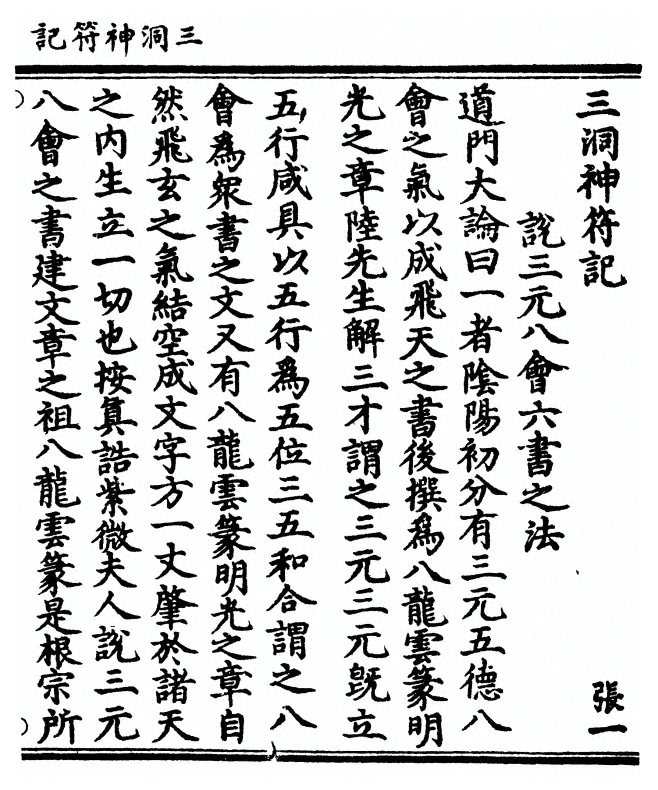 三洞神符記
三洞神符記
張一
說三元八會六書之法
道門大論曰一者陰陽初分有三元五德八
會之氣以成飛天之書後撰爲八龍雲篆明
光之章陸先生解三才謂之三元三元旣立
五行咸具以五行爲五位三五和合謂之八
會爲衆書之文又有八龍雲篆明光之章自
然飛玄之氣結空成文字方一丈肇於諸天
之内生立一切也按眞誥紫微夫人說三元
八會之書建文章之祖八龍雲篆是根宗所